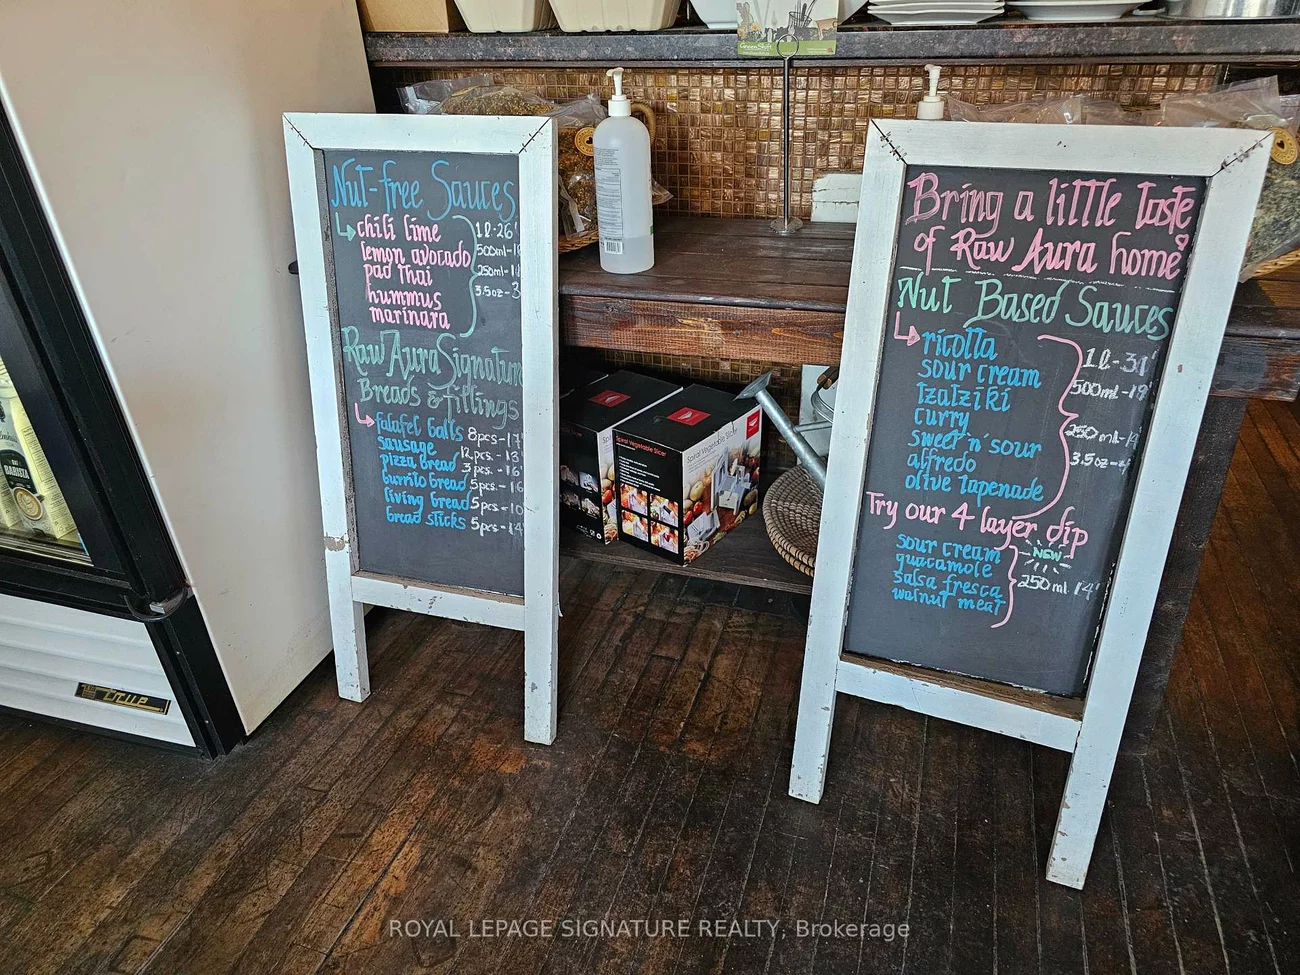 GreenShift
Nut-free Sauces
chili lime
lemon avocado
pad thai
hummus
marinara
1L-26
500ml-1
250ml-1
3.5oz-3
Raw Aura Signature
Breads & fillings
falafel balls 8pcs-17
sausage 12pcs-13
pizza bread 3pcs.-16
burrito bread 5pcs.-16
living bread 5pcs-10
bread sticks 5pcs-14
Bring a little taste
of Raw Aura home
Nut Based Sauces
ricotta
sour cream
tzatziki
curry
sweet 'n' sour
alfredo
olive tapenade
1L-34
500ml-19
250ml-14
3.5oz-4
Try our 4 layer dip
NEW
sour cream
guacamole
salsa fresca
walnut meat
250ml 14
Spiral Vegetable Slicer
Spiral Vegetable Slicer
BARISTA
true
ROYAL LEPAGE SIGNATURE REALTY, Brokerage